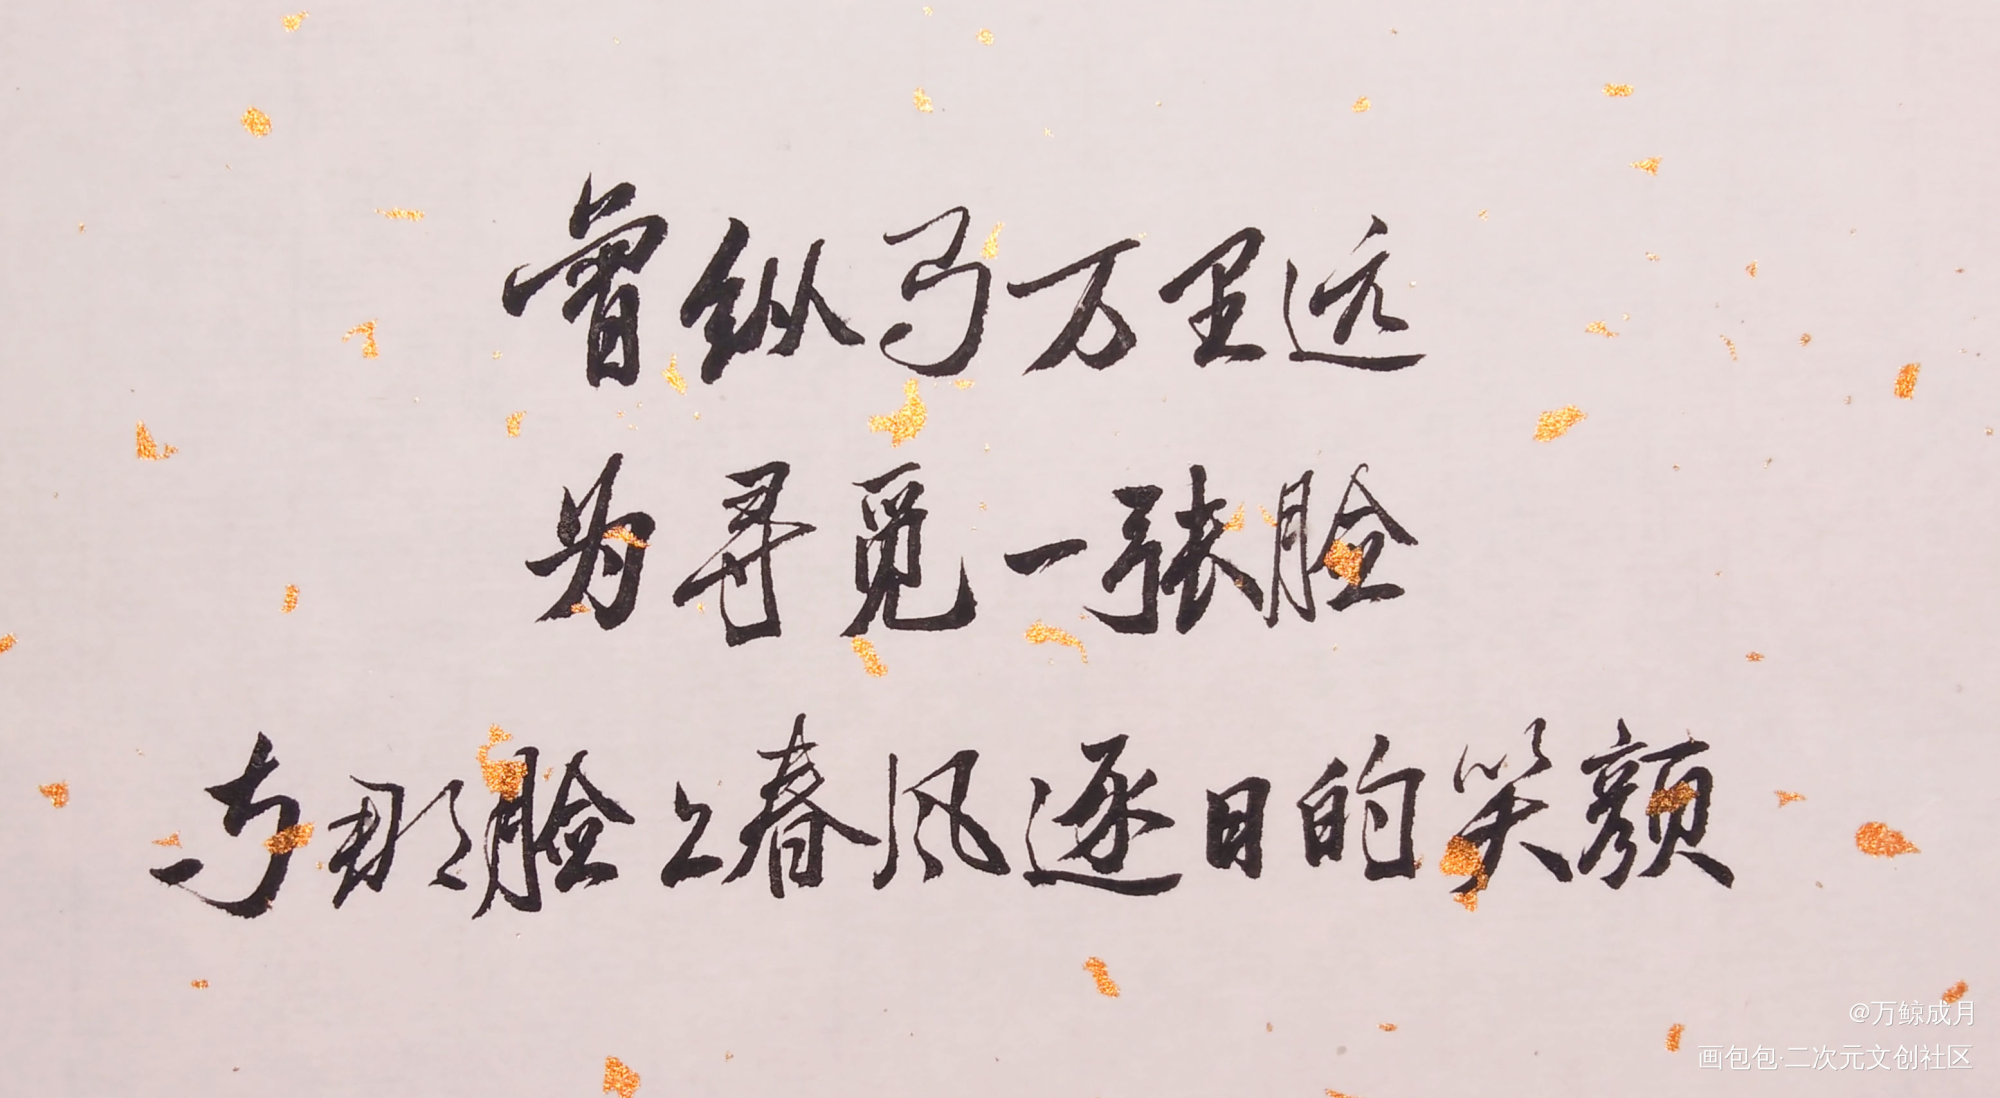 曾纵马万里远
为寻觅一张脸
与那脸上春风逐日的笑颜
@万鲸成月
画包包·二次元文创社区